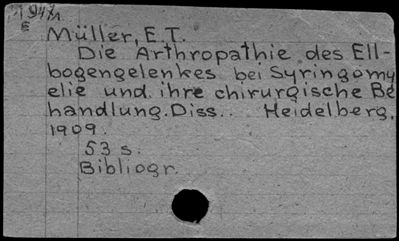 Müller, E.T.
Die Arthropathie des Ell-
bogengelenkes bei Syringomy
elie und ihre chirurgische Be
handlung. Diss.. Heidelberg,
1909.
53 s.
Bibliogr.